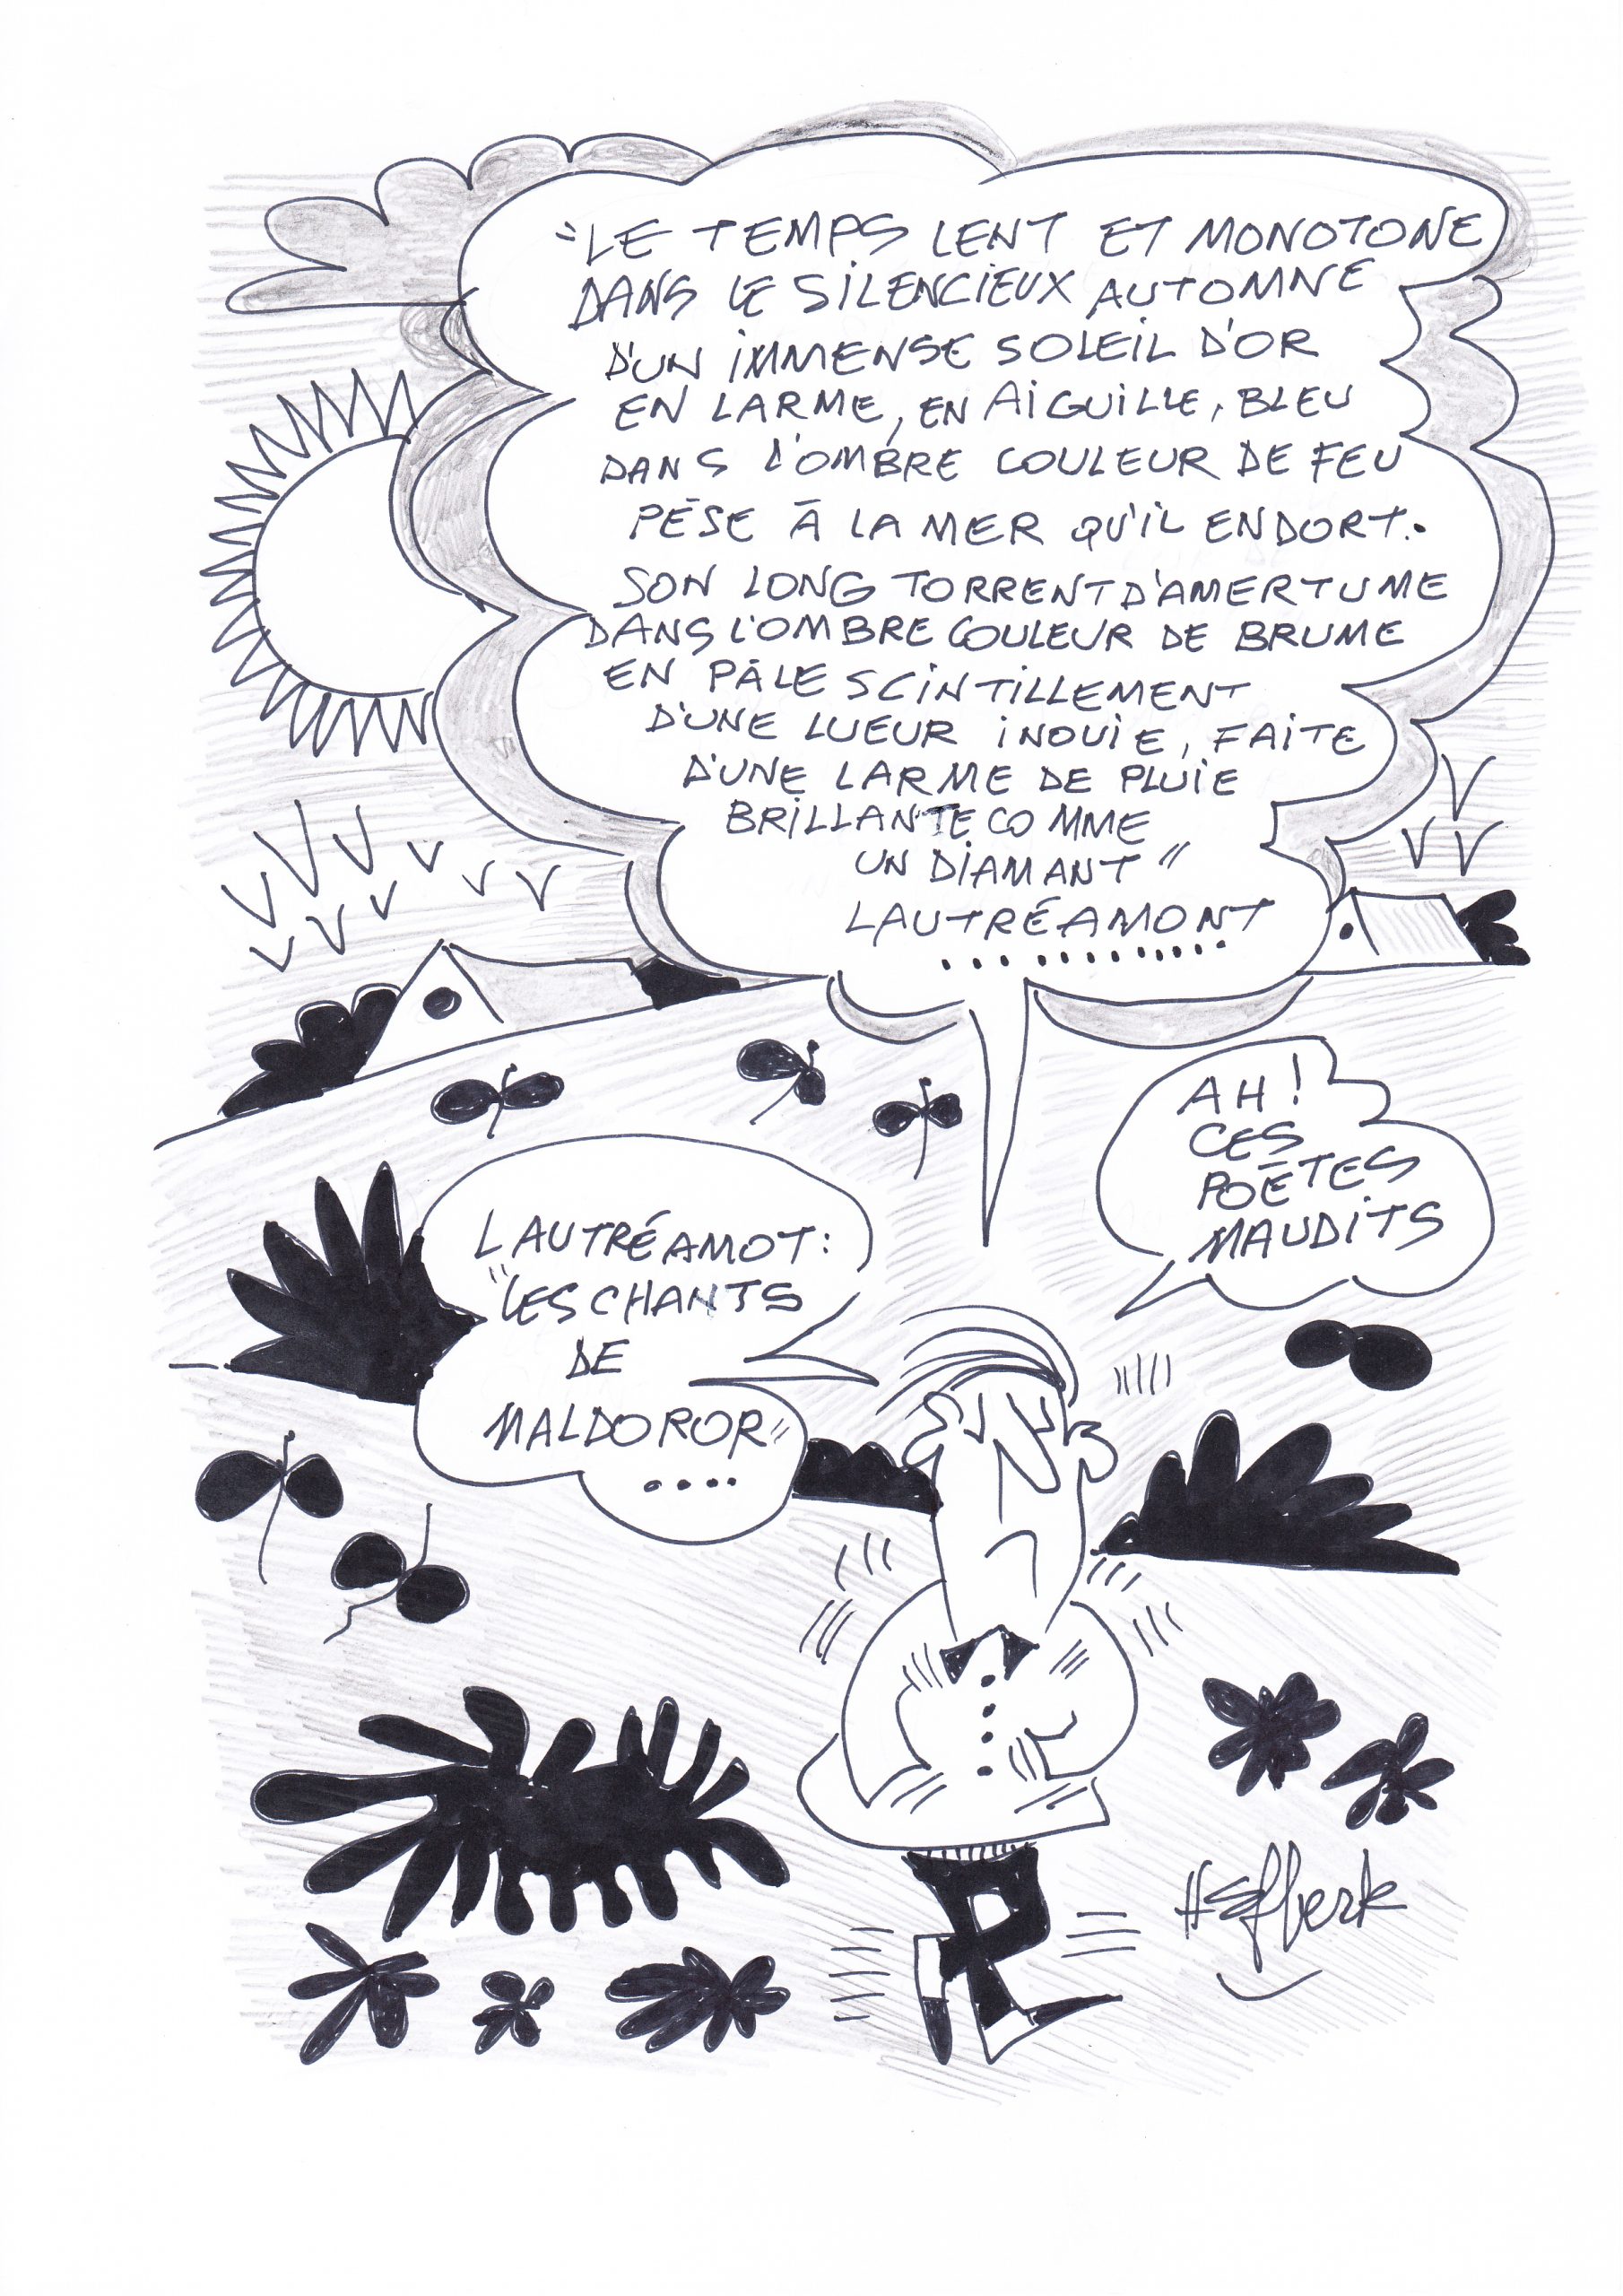 "LE TEMPS LENT ET MONOTONE
DANS LE SILENCIEUX AUTOMNE
D'UN IMMENSE SOLEIL D'OR
EN LARME, EN AIGUILLE, BLEU
DANS L'OMBRE COULEUR DE FEU
PÈSE À LA MER QU'IL ENDORT.
SON LONG TORRENT D'AMERTUME
DANS L'OMBRE COULEUR DE BRUME
EN PÂLE SCINTILLEMENT
D'UNE LUEUR INOUIE, FAITE
D'UNE LARME DE PLUIE
BRILLANTE COMME
UN DIAMANT"
LAUTRÉAMONT
............
AH!
CES
POÈTES
MAUDITS
LAUTRÉAMOT:
"LES CHANTS
DE
MALDOROR"
....